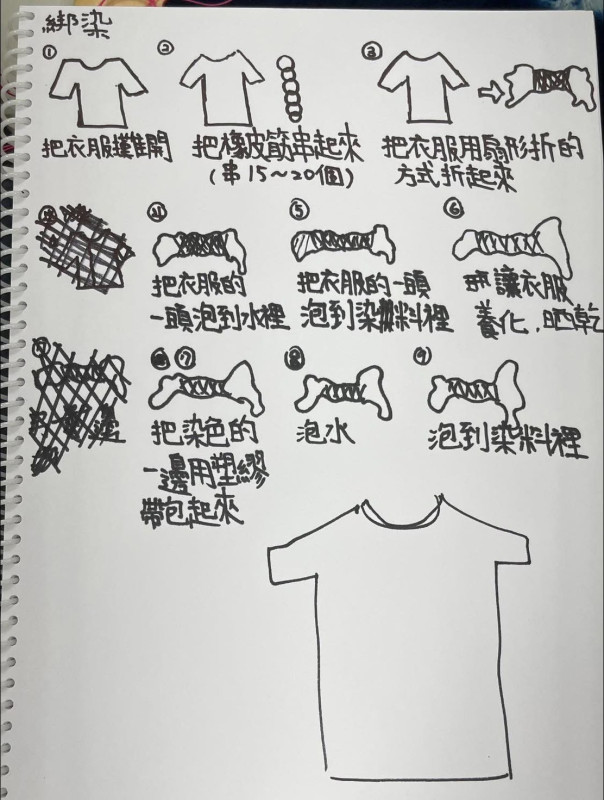 綁染
① ② ③
把衣服攤開 把橡皮筋串起來 把衣服用扇形折的
(串15～20個) 方式折起來
④ ⑤ ⑥
把衣服的 把衣服的一頭 讓衣服
一頭泡到水裡 泡到染料裡 養化,晒乾
⑦ ⑧ ⑨
把染色的 泡水 泡到染料裡
一邊用塑繆
帶包起來